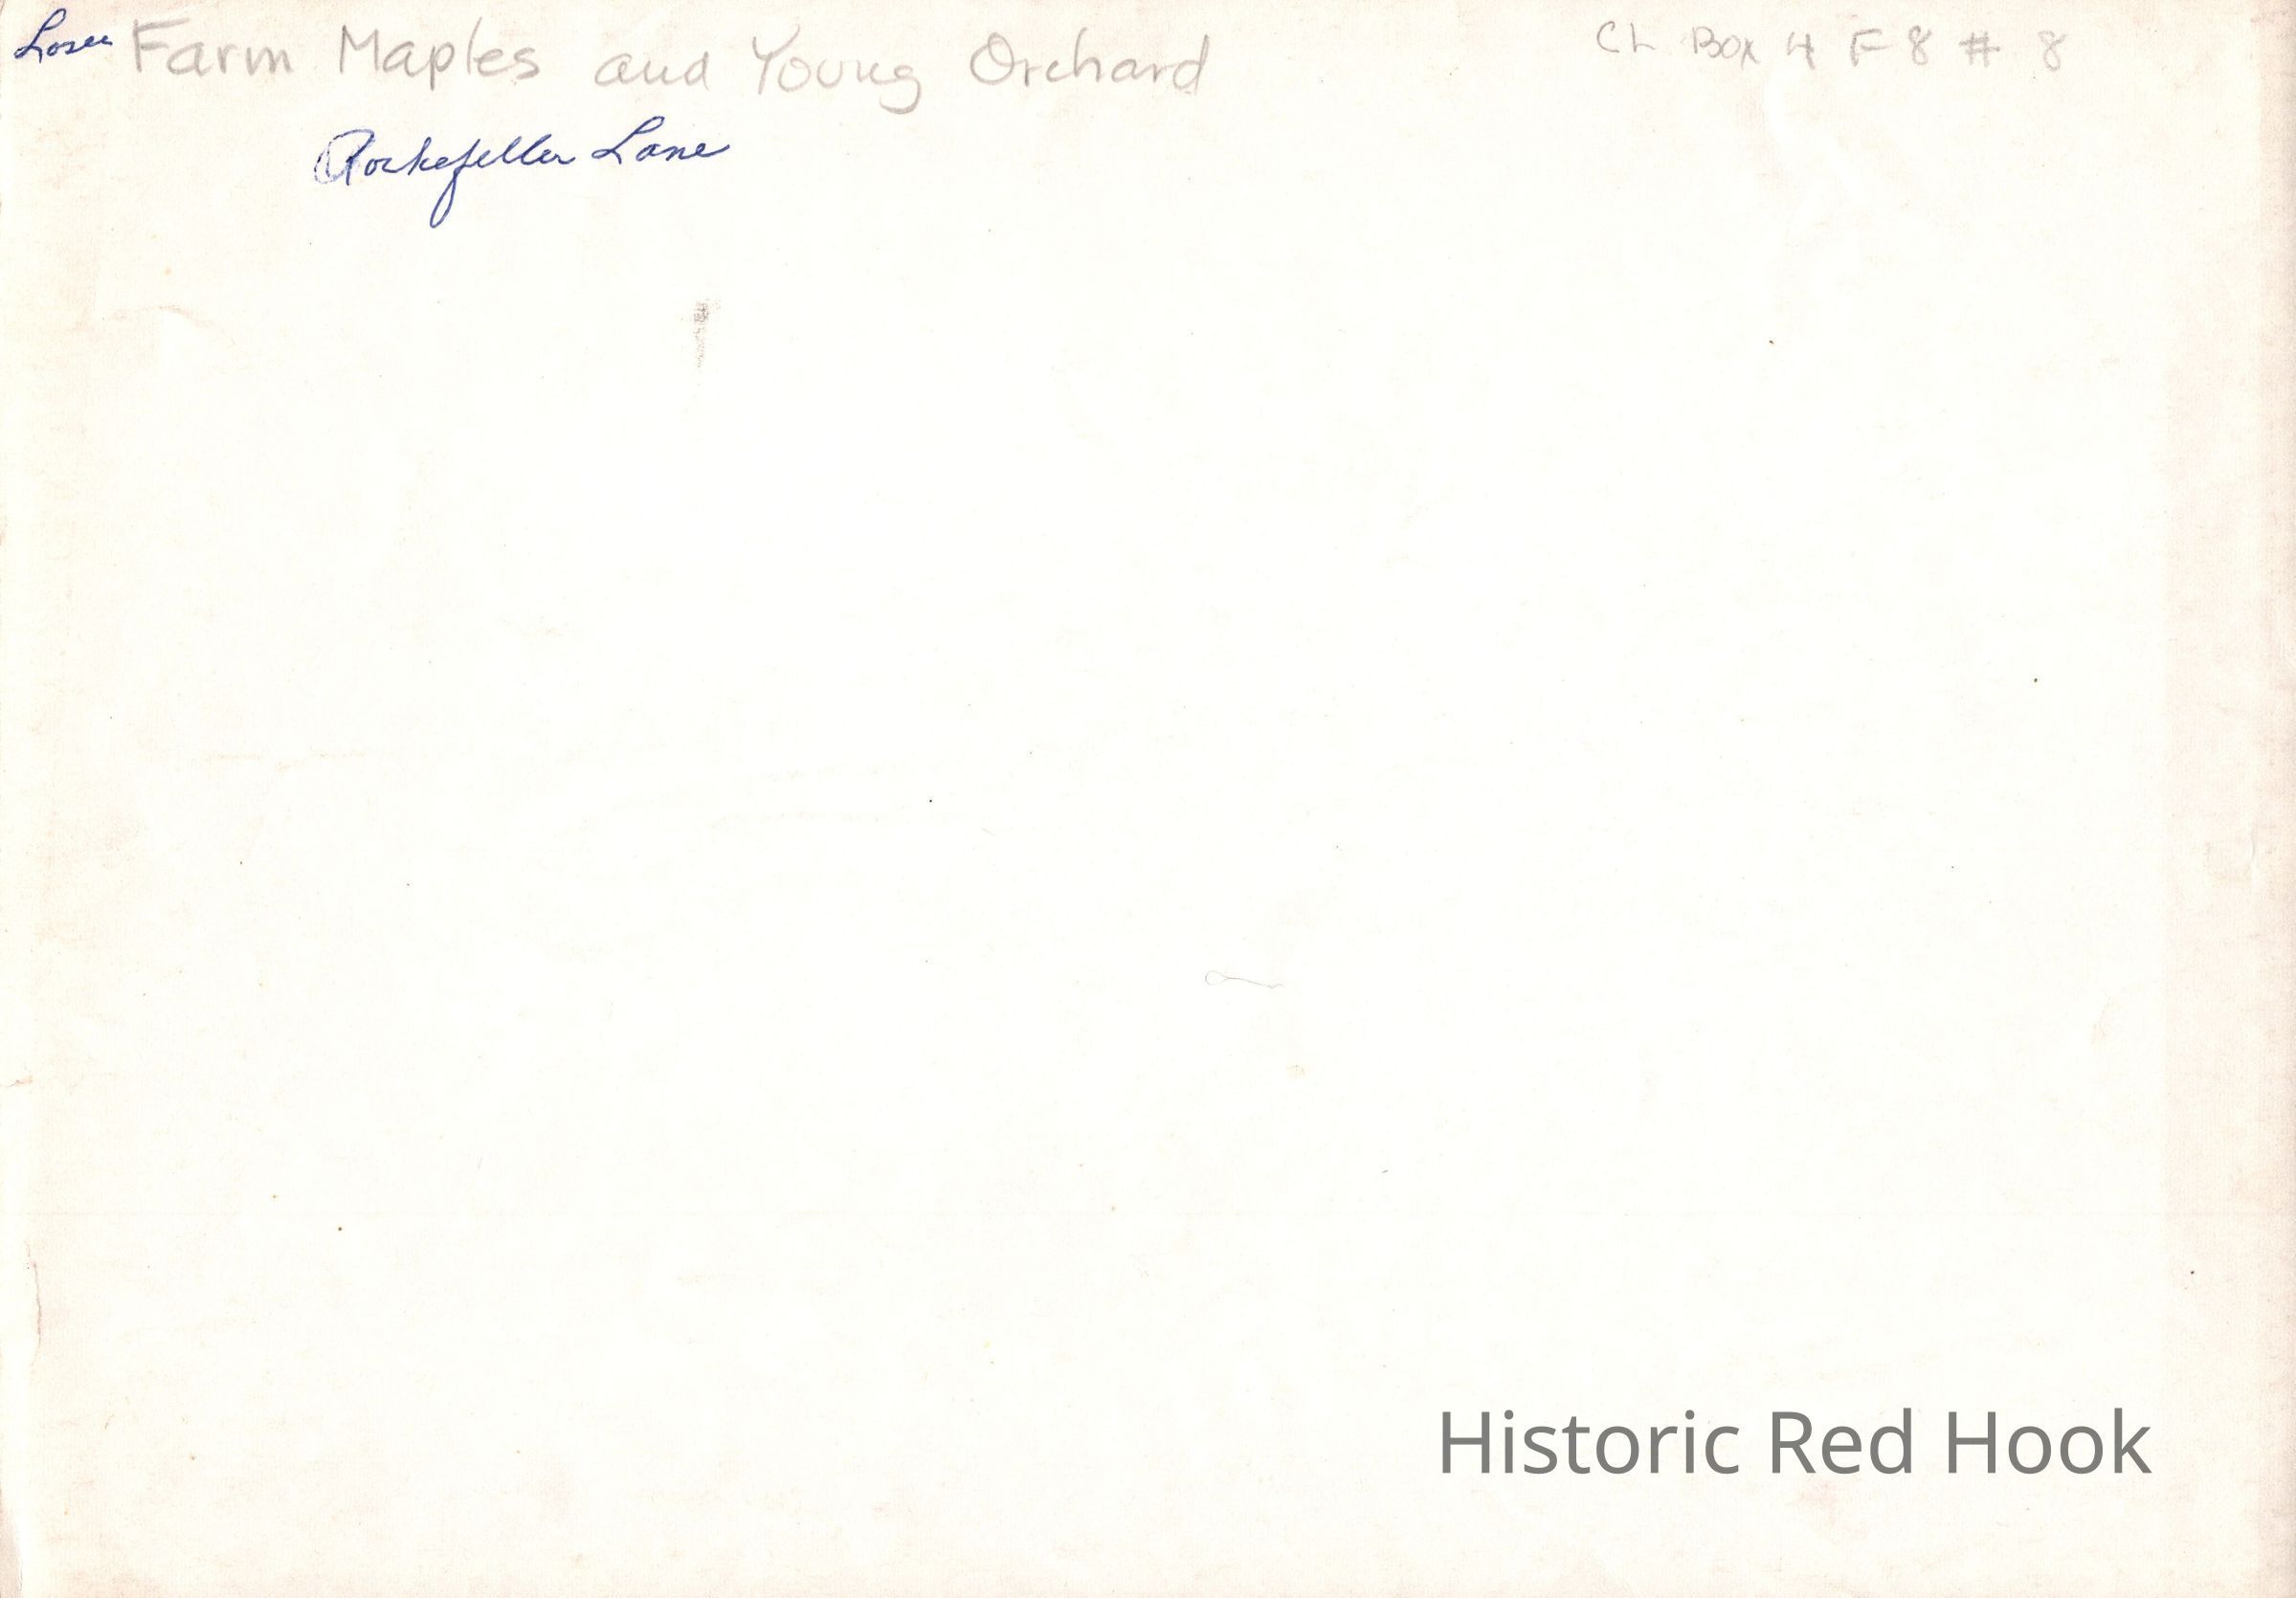 Losee Farm Maples and Young Orchard
CL Box 4 F 8 # 8
Rockefeller Lane
Historic Red Hook